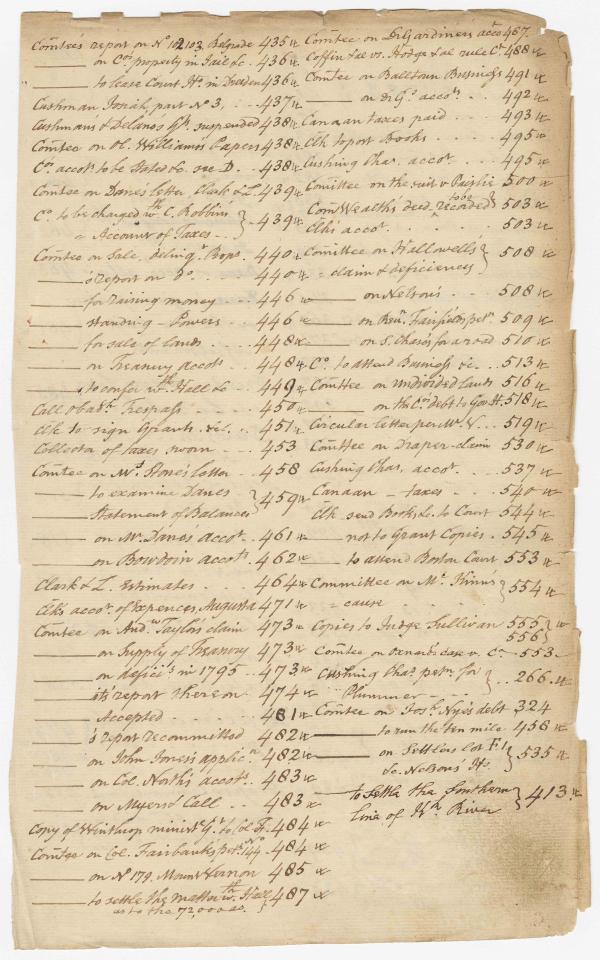 Comtee's report on No 102.103, Belgrade 435
——— on Co. property in Jail &c. 436
——— to lease Court Ho. in Dresden 436
Cushman Josiah, part No 3, 437
Cushman's & Delano's Gt. suspended 438
Comtee on Ol. William's Papers 438
Co. accots. to be Stated &c. see D. 438
Comtee on Dane's letter, Clark & L. 439
Co. to be charged wth. C. Robbins
= Account of Taxes 439
Comtee on Sale, delinqt. Props. 440
———'s report on Do. 440
——— for raising money 446
——— standing — Powers 446
——— for sale of lands 448
——— on Treasury accots. 448
——— to confer wth. Hall &c 449
Call Obadh. Trespass 450
Clk to sign Grants &c. 451
Collector of taxes sworn 453
Comtee on Mr. Stone's letter 458
——— to examine Danes
Statement of Balances 459
——— on Mr. Danes accot. 461
——— on Bowdoin accots. 462
Clark & L. Estimates 464
Clk's accot. of Expences, Augusta 471
Comtee on Andw. Taylor's claim 473
——— on Supply of Treasury 473
——— on defict. in 1795 473
——— its report thereon 474
——— Accepted 481
———'s report recommitted 482
——— on John Jones's applicn. 482
——— on Col. North's accots. 483
——— on Myers's Call 483
Copy of Winthrop minits. to Col. F. 484
Comtee on Col. Fairbanks's petn. No 144 484
——— on No 179. Mount Vernon 485
——— to settle the matter wth. Hall
as to the 72,000 as. 487
Comtee on Dr. Gardiner's accots 487.
Coffin & al vs. Hodge & al rule Ct. 488
Comtee on Balltown Business 491
——— on Dr. G's accots. 492
Canaan taxes paid 493
Clk to post Books 495
Cushing Chas. accot. 495
Comittee on the suit v 500
ComWealth's deed, to be recorded 503
Clk's accot. 503
Comittee on Hallowells
= claim & deficiences 508
——— on Nelson's 508
——— on Revd. Fairfield's petn. 509
——— on S. Chases for a road 510
Co. to attend Business &c. 513
Comttee on undivided lands 516
——— on the Co. debt to Gov. H. 518
Circular letter per W. V. 519
Comttee on Draper-claim 530
Cushing Chas. accot. 537
Canaan — taxes 540
Clk send Books &c. to Court 544
——— not to Grant Copies 545
——— to attend Boston Court 553
Committee on Mr.
= cause 554
Copies to Judge Sullivan 555
556
Comtee on case v. Co. 553
Cushing Chas. petn. for
Plummer 266
Comtee on Josh. Nye's debt 324
——— to run the ten mile 458
——— on Settlers lot F.
&c. Nelsons 535
——— to settle the Southern
line of Kk. River 413